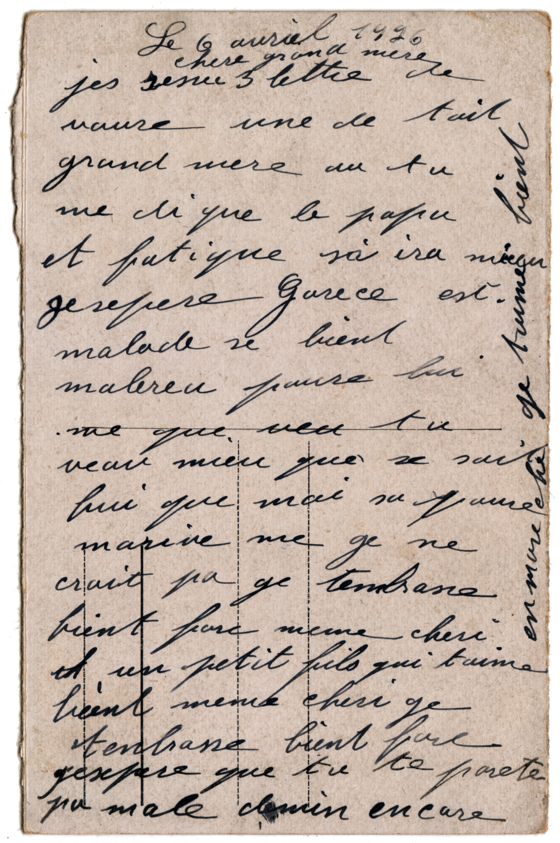 Le 6 avriel 1926
chere grand mere
jes resue 3 lettre de
vouse une de tait
grand mere ou tu
me di que le papa
et fatique sa ira mieu
jesepere Gorece est.
malade se bient
malereu pouse lui
me que veu tu
veau mieu que se soit
lui que moi sa pouse
marive me ge ne
croit pa ge tenbrasse
bient fore meme cheri
et un petit fils qui taime
bient meme cheri ge
tenbrasse bient fore
jesepere que tu te porete
pa male demin encore
en more che ge taime bient